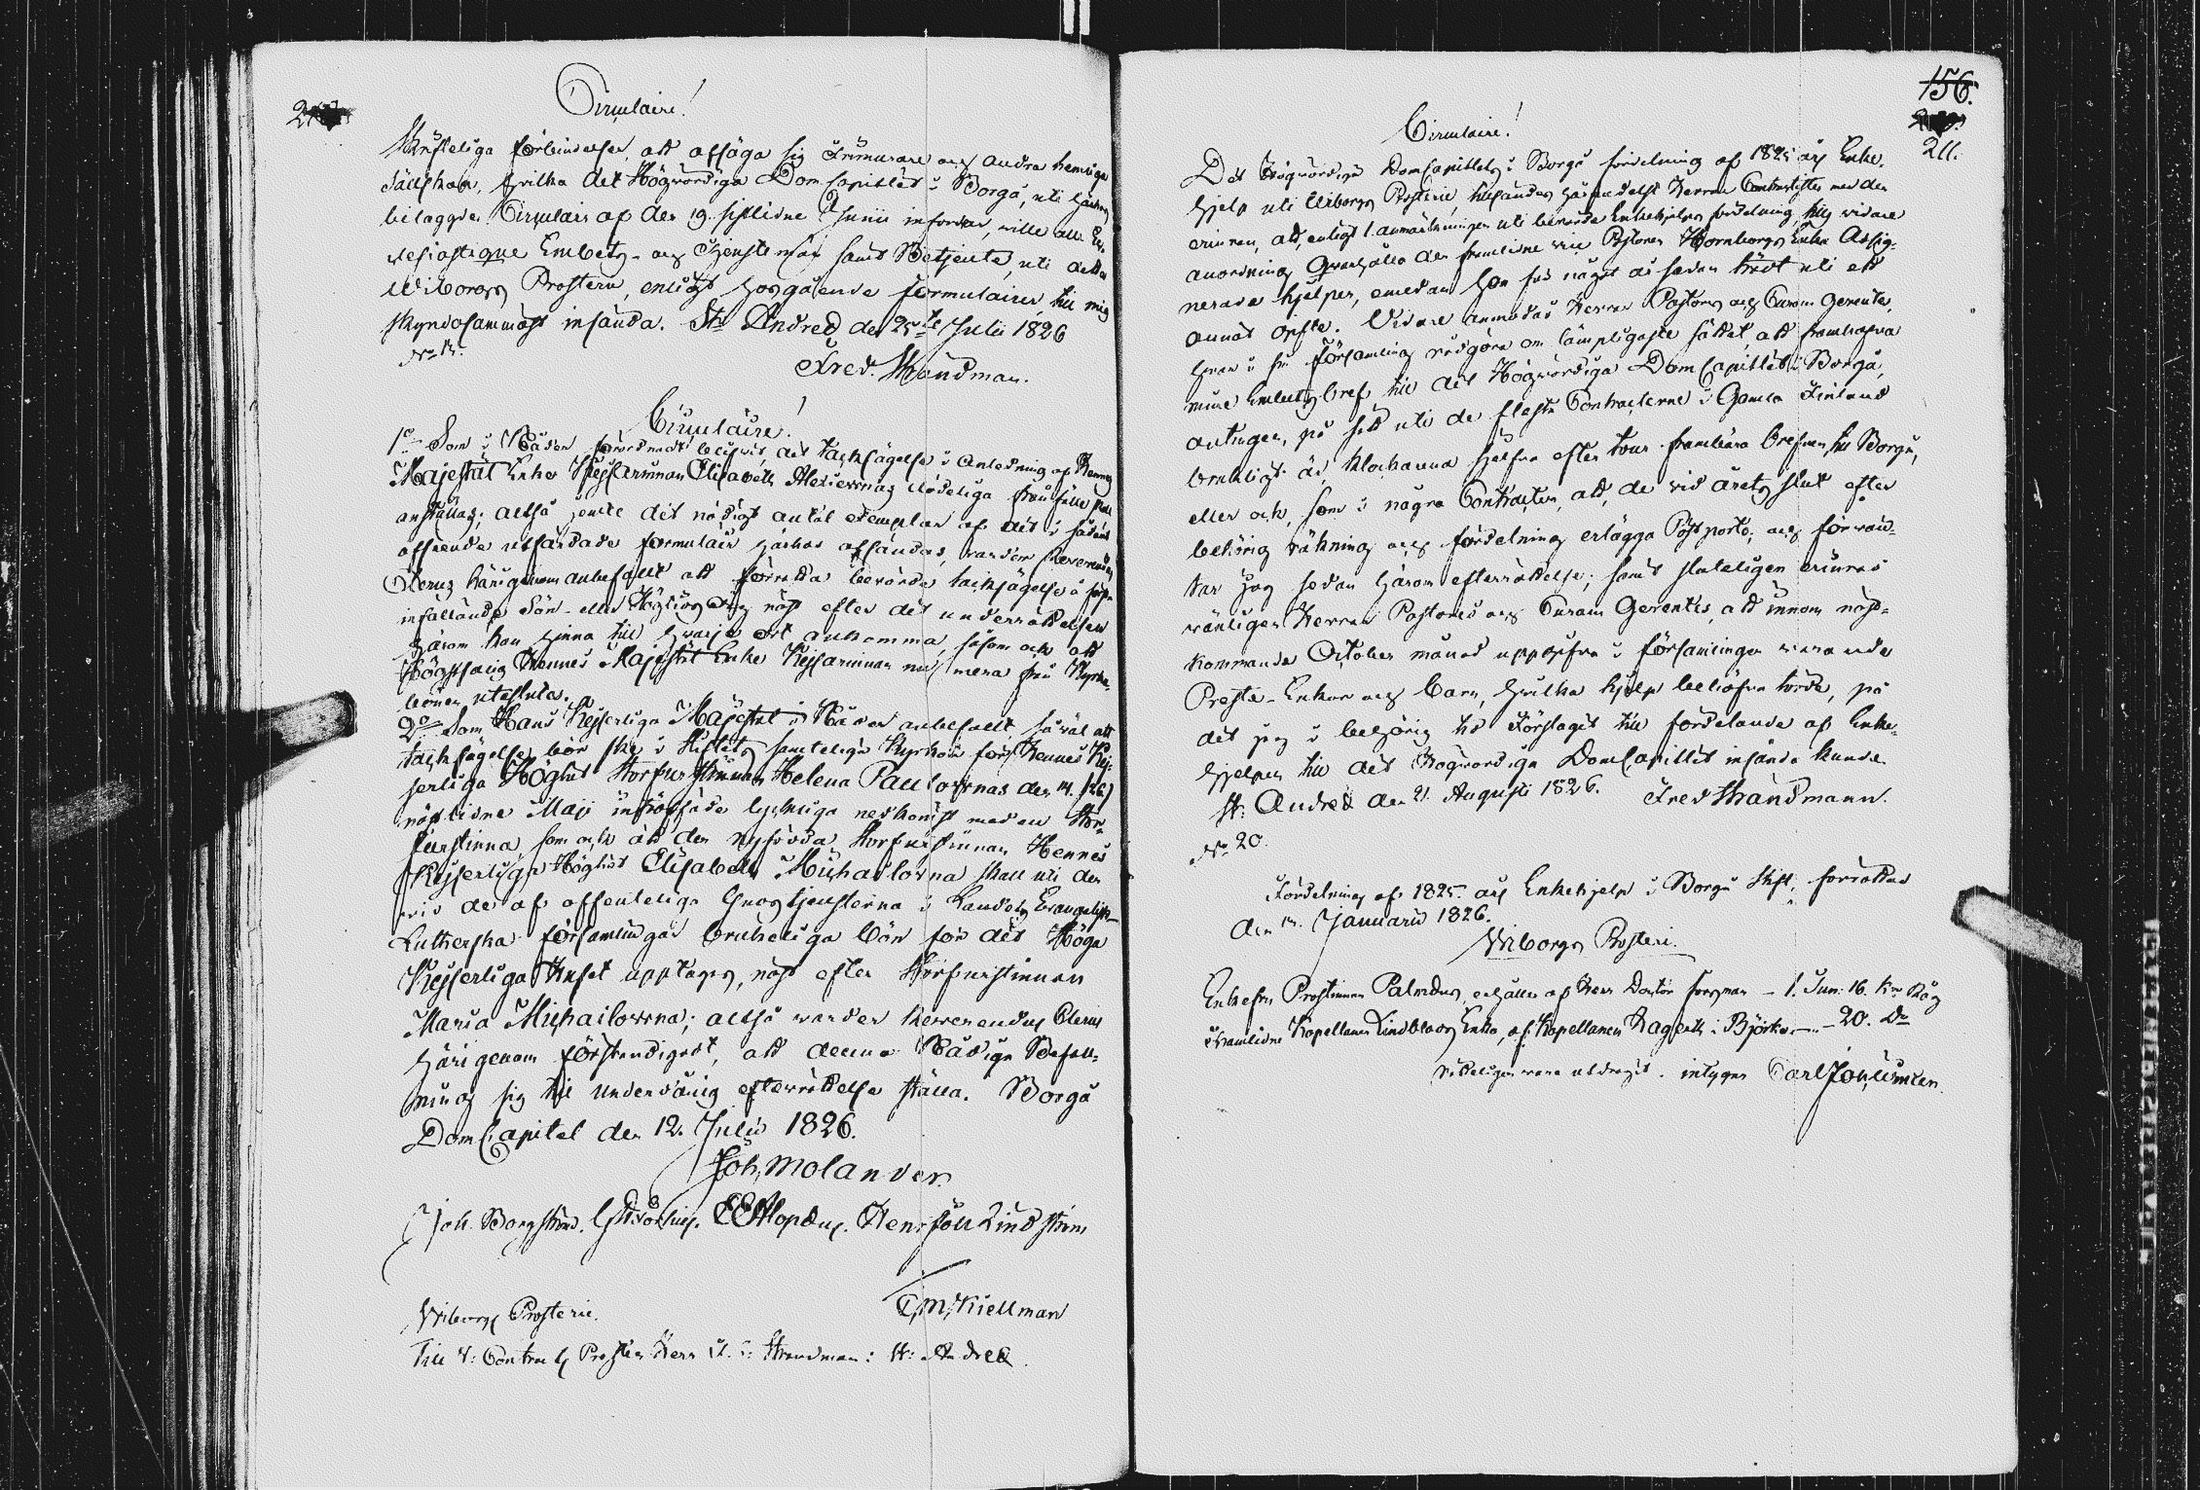 Circulaire!
Skrifteliga förbindelser, att afsäga sig Frimurare och andra hemliga
Sällskap, hvilka det Högvördiga DomCapitlet i Borgå, uti härhos
bilaggde Circulair af den 19. sistlidne Junii infordrar, wille alla Ec-
clesiastique Embets- och Tjenstemän samt Betjente, uti detta
Wiborgs Prosteri, enligt hosgående formulairer, till mig
skyndsammast insända. St. Andreæ den 25te Julii 1826
Fred. Strandman.
Circulaire!
1o Som i Nåder förordnadt blifvit, det tacksägelse i anledning af Hennes
Majestät Enke Kejsarinnan Elisabeth Alexiewnas dödeliga frånfälle skall
anställas; altså jemte det nödigt antal exemplar af det i sådant
afseende utfärdade formulair härhos afsändas, warder Reverendus
Clerus härigenom anbefallt att förrätta berörde tacksägelse å först
infallande Sön- eller Högtidsdag näst efter det underrättelsen
härom kan hinna till hvarje ort ankomma, såsom ock att
Högstsalig Hennes Majestät Enke Kejsarinnan nu mera från Kyrko-
bönen uteslutes.
2o Som Hans Kejserliga Majestät i Nåder anbefallt, så väl att
tacksägelse bör ske i Stiftets samteliga Kyrkor för Hennes Kej-
serliga Höghet Storfurstinnan Helena Paulownas den 14. (26)
nästlidne Maji inträffade lyckliga nedkomst med en Stor-
furstinna, som ock att den nyfödda Storfurstinnan Hennes
Kejserliga Höghet Elisabeth Michailovna skall uti den
wid de af offenteliga Gudstjensterna i Landets Evangelisk-
Lutherska församlingar brukeliga bön för det Höga
Kejserliga Huset upptagas, näst efter Storfurstinnan
Maria Michailowna; altså warder Reverendus Clerus
härigenom förständigadt, att denna Nådiga Befall-
ning sig till underdånig efterrättelse ställa. Borgå
DomCapitel den 12. Julii 1826.
Joh. Molander.
Joh. Borgström. Henr. Joh. Lindström
C. M. Kiellman
Wiborgs Prosteri.
Till V: Contracts Prosten Herr Strandman: St: Andreæ.
156.
211.
Circulaire!
Det Högvördiga DomCapitlets i Borgå fördelning af 1825 års Enke-
hjelp uti Wiborgs Prosteri, tillsändes härmedelst Herrar Contractister med den
erinran, att, enligt anmärkningen uti berörde Enkehjelps fördelning, till vidare
anordning qvarhålla den framlidne vice Pastoren Hornborgs Enka Assig-
nerade hjelpen, emedan hon för något år sedan trädt uti ett
annat gifte. Vidare anmodas Herrar Pastores och Curam Gerentes,
hvar i sin församling rådgöra om lämpligaste sättet, att framskaffa
mine Embets bref till det Högvördiga DomCapitlet i Borgå,
antingen, på sätt uti de flesta Contracterne i Gamla Finland
brukligt är, Klockarena sjelfva efter tour frambära brefven till Borgå,
eller ock, som i några Contracter, att de vid årets slut efter
behörig räkning och fördelning erlägga Postporto; och förvän-
tar jag sedan härom efterrättelse; samt sluteligen erinras
vänligen Herrar Pastores och Curam Gerentes, att innom näst-
kommande October månad uppgifva i församlingen varande
Preste-Enkor och barn, hvilka hjelp behöfva torde, på
det jag i behörig tid Förslaget till fördelande af Enke-
hjelpen till det Högvördiga DomCapitlet insända kunde.
St: Andreæ den 21. Augusti 1826. Fred Strandmann.
No 20.
Fördelning af 1825. års Enkehjelp i Borgå Stift, förrättad
den Januarii 1826.
Wiborgs Prosteri.
Enkefru Prostinnan Palmdus, erhåller af Herr Doctor – 1. Tun: 16. Kr Råg
Framlidne Kapellanen Lindbloms Enka, af Kapellanen Hagerth i Björkö – 20. Do
Rikteligen vara utdragit, intygar Carl Joh,